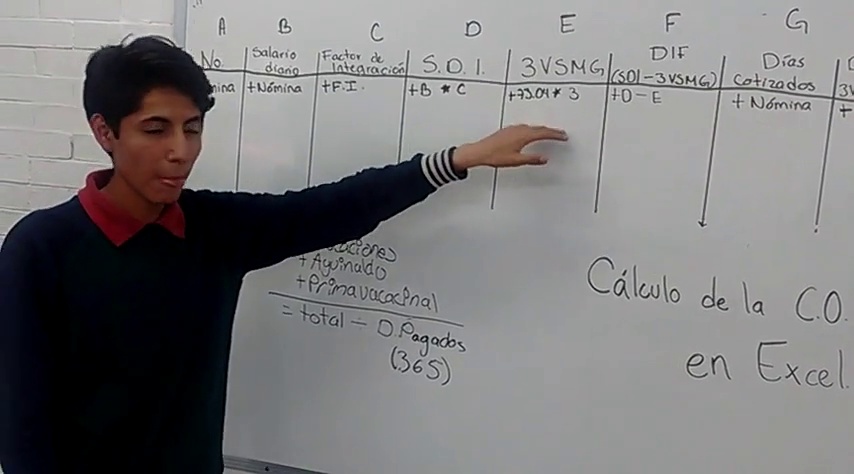 A B C D E F G
No.
Salario
diario
Factor de
Integración
S.D.I.
3VSMG
DIF
(SDI-3VSMG)
Días
Cotizados
+Nómina
+F.I.
+B * C
+73.04* 3
+D-E
+ Nómina
+ Aguinaldo
+ Prima vacacional
= total ÷ D. Pagados
(365)
Cálculo de la C.O.
en Excel.